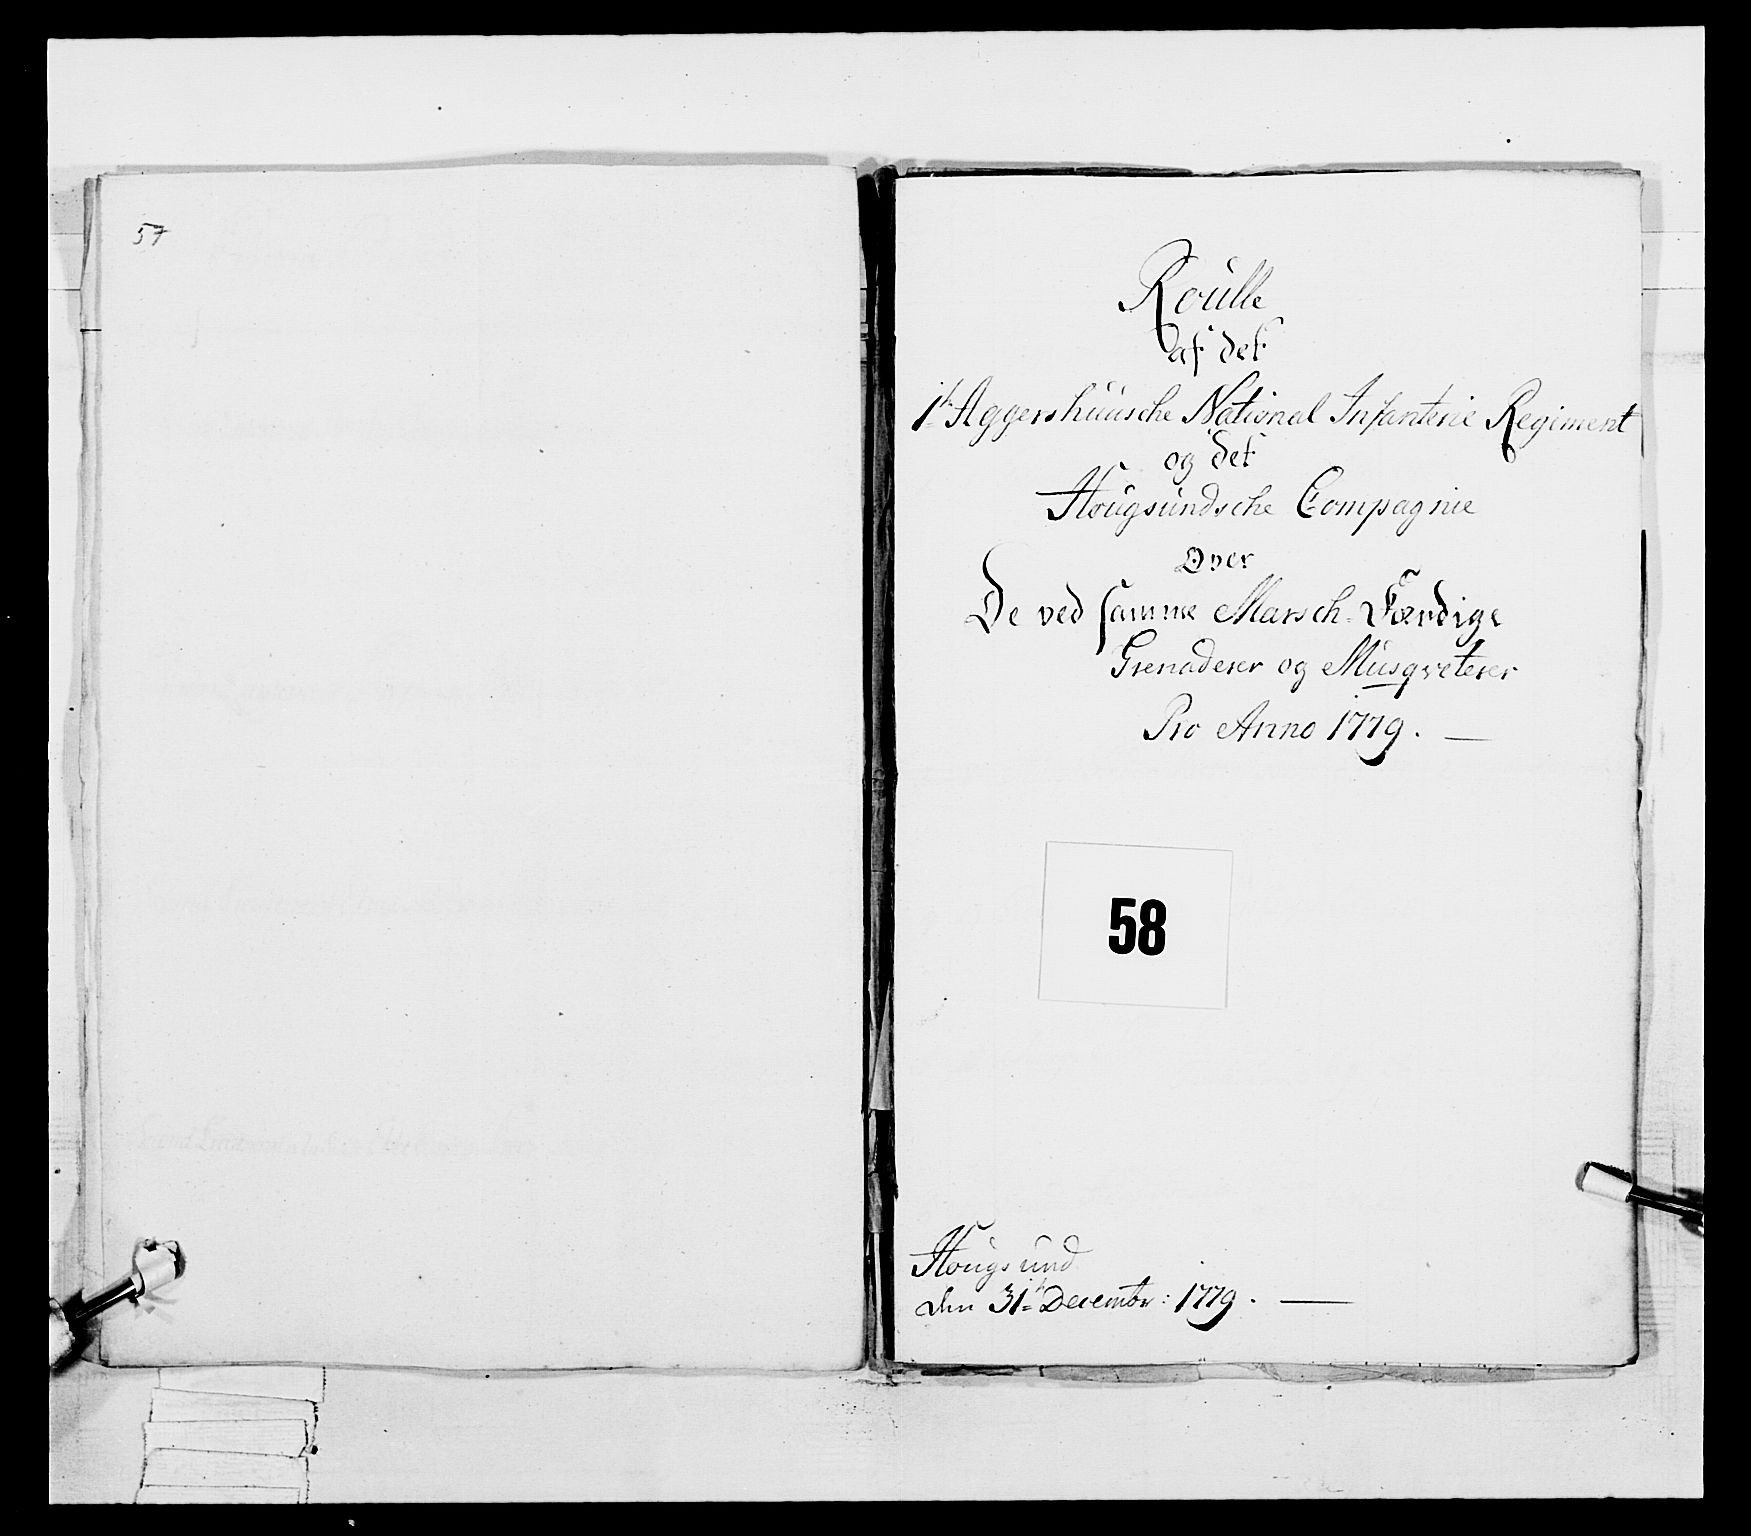 57
Roulle
af det
1te Aggershuusche National Infanterie Regiment
og det
Hougsundsche Compagnie
Over
De ved samme Marsch-Færdige
Grenaderer og Musqveterer
Pro Anno 1779. —
58
Hougsund
den 31te Decembr: 1779. —